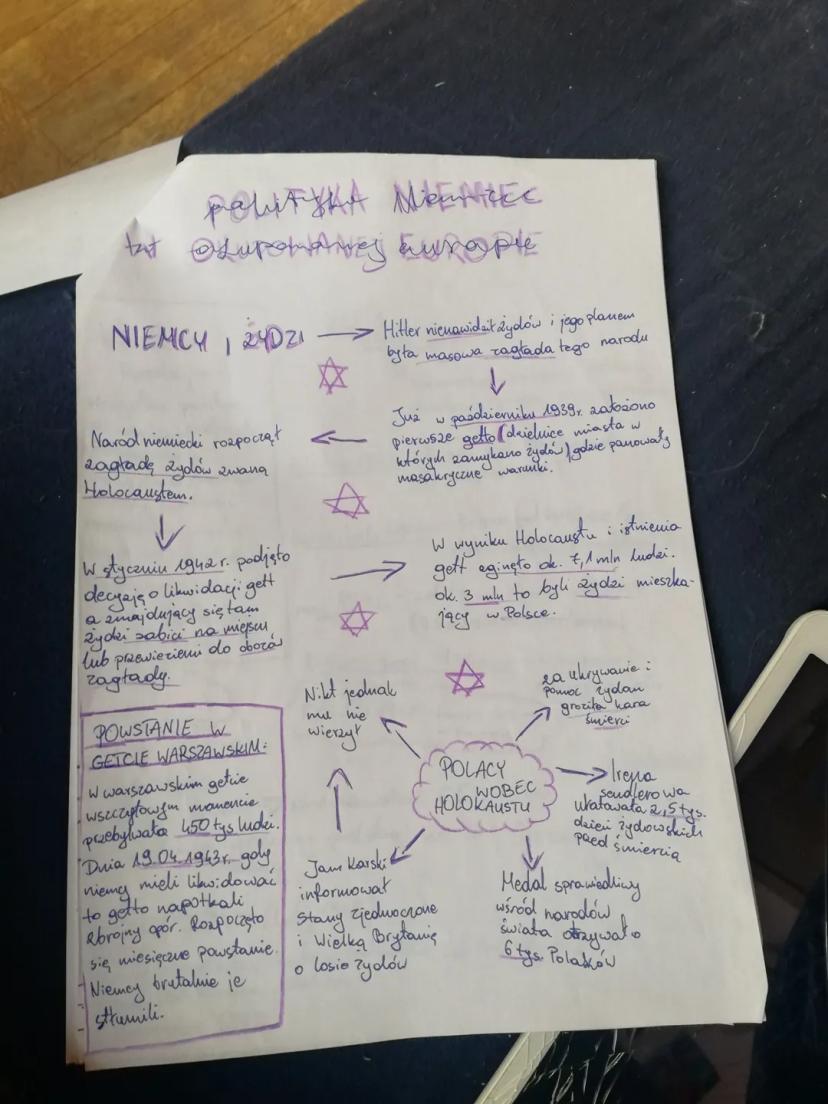 POLITYKA NIEMIEC
w OKUPOWANEJ EUROPIE
NIEMCY I ŻYDZI
Hitler nienawidził żydów i jego planem
była masowa zagłada tego narodu
Już w październiku 1939r. założono
pierwsze getto (dzielnice miasta w
których zamykano żydów) gdzie panowały
masakryczne warunki.
Naród niemiecki rozpoczął
zagładę żydów zwaną
Holocaustem.
W styczniu 1942 r. podjęto
decyzję o likwidacji gett
a znajdujący się tam
żydzi zabici na miejscu
lub przewiezieni do obozów
zagłady.
W wyniku Holocaustu i istnienia
gett zginęło ok. 7,1 mln ludzi.
ok. 3 mln to byli żydzi mieszka-
jący w Polsce.
POWSTANIE W
GETCIE WARSZAWSKIM:
W warszawskim getcie
wszczytowym momencie
przebywało 450 tys ludzi.
Dnia 19.04.1943r. gdy
niemcy mieli likwidować
to getto napotkali
zbrojny opór. Rozpoczęto
się miesięczne powstanie.
Niemcy brutalnie je
stłumili.
POLACY
WOBEC
HOLOKAUSTU
Nikt jednak
mu nie
wierzył
za ukrywanie i
pomoc żydom
groziła kara
śmierci
Irena
sendlerowa
uratowała 2,5 tys.
dzieci żydowskich
przed śmiercią
Medal sprawiedliwy
wśród narodów
świata otrzywało
6 tys. Polaków
Jan Karski
informował
stany zjednoczone
i Wielką Brytanię
o losie żydów